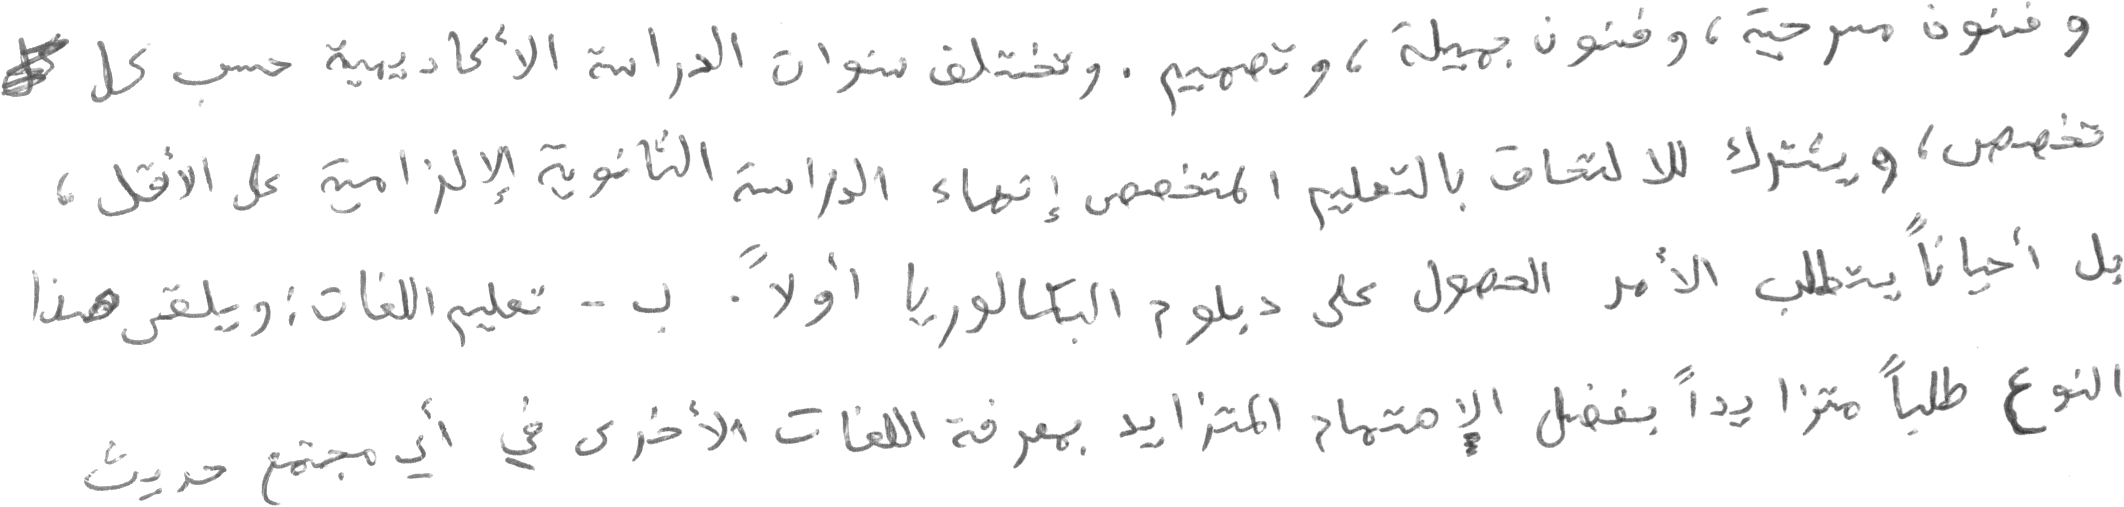 وفنون مسرحية، وفنون جميلة، وتصميم. وتختلف سنوات الدراسة الأكاديمية حسب كل
تخصص، ويشترك للالتحاق بالتعليم المتخصص إنهاء الدراسة الثانوية الإلزامية على الأقل،
بل أحياناً يتطلب الأمر الحصول على دبلوم البكالوريا أولاً. ب - تعليم اللغات: ويلقى هذا
النوع طلباً متزايداً بفضل الإهتمام المتزايد بمعرفة اللغات الأخرى في أي مجتمع حديث